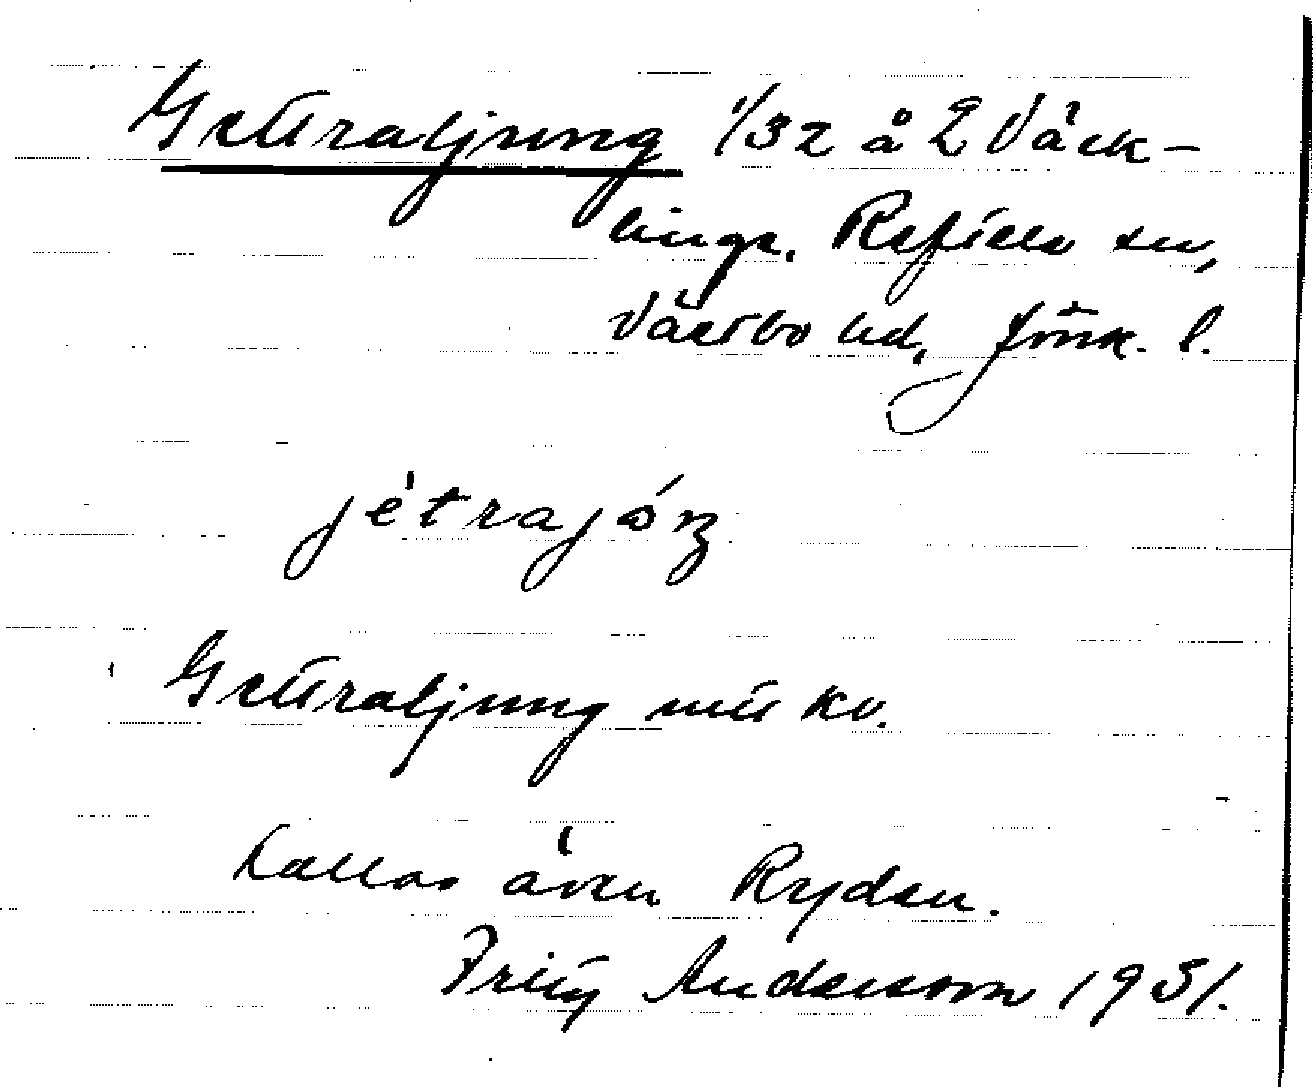 Getteraljung 1/32 å 2 Väck-
linge. Reftele sn,
Västbo hd, Jönk. l.
jètrajóŋ
Getteraljung mitt kv.
kallas även Ryden.
Fritz Andersson 1931.